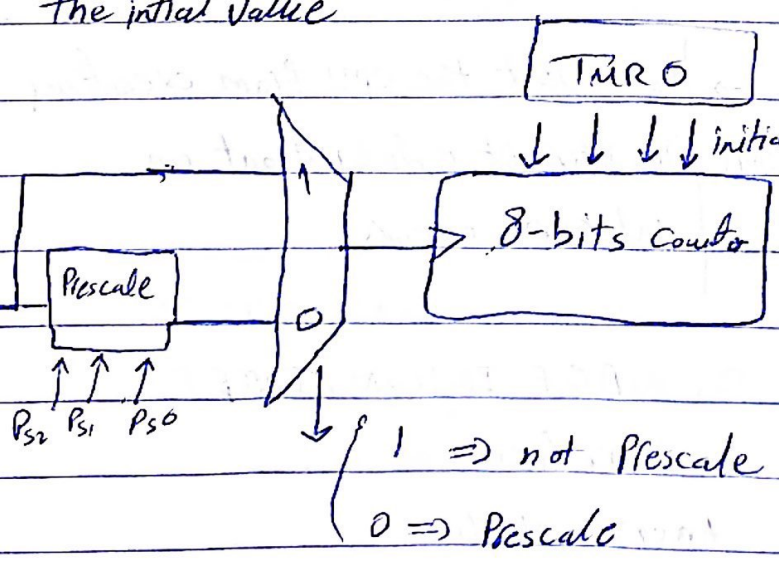 The intial Value
TMR0
initia
1
8-bits Counter
Prescale
0
PS2 PS1 PS0
1 => not Prescale
0 => Prescale